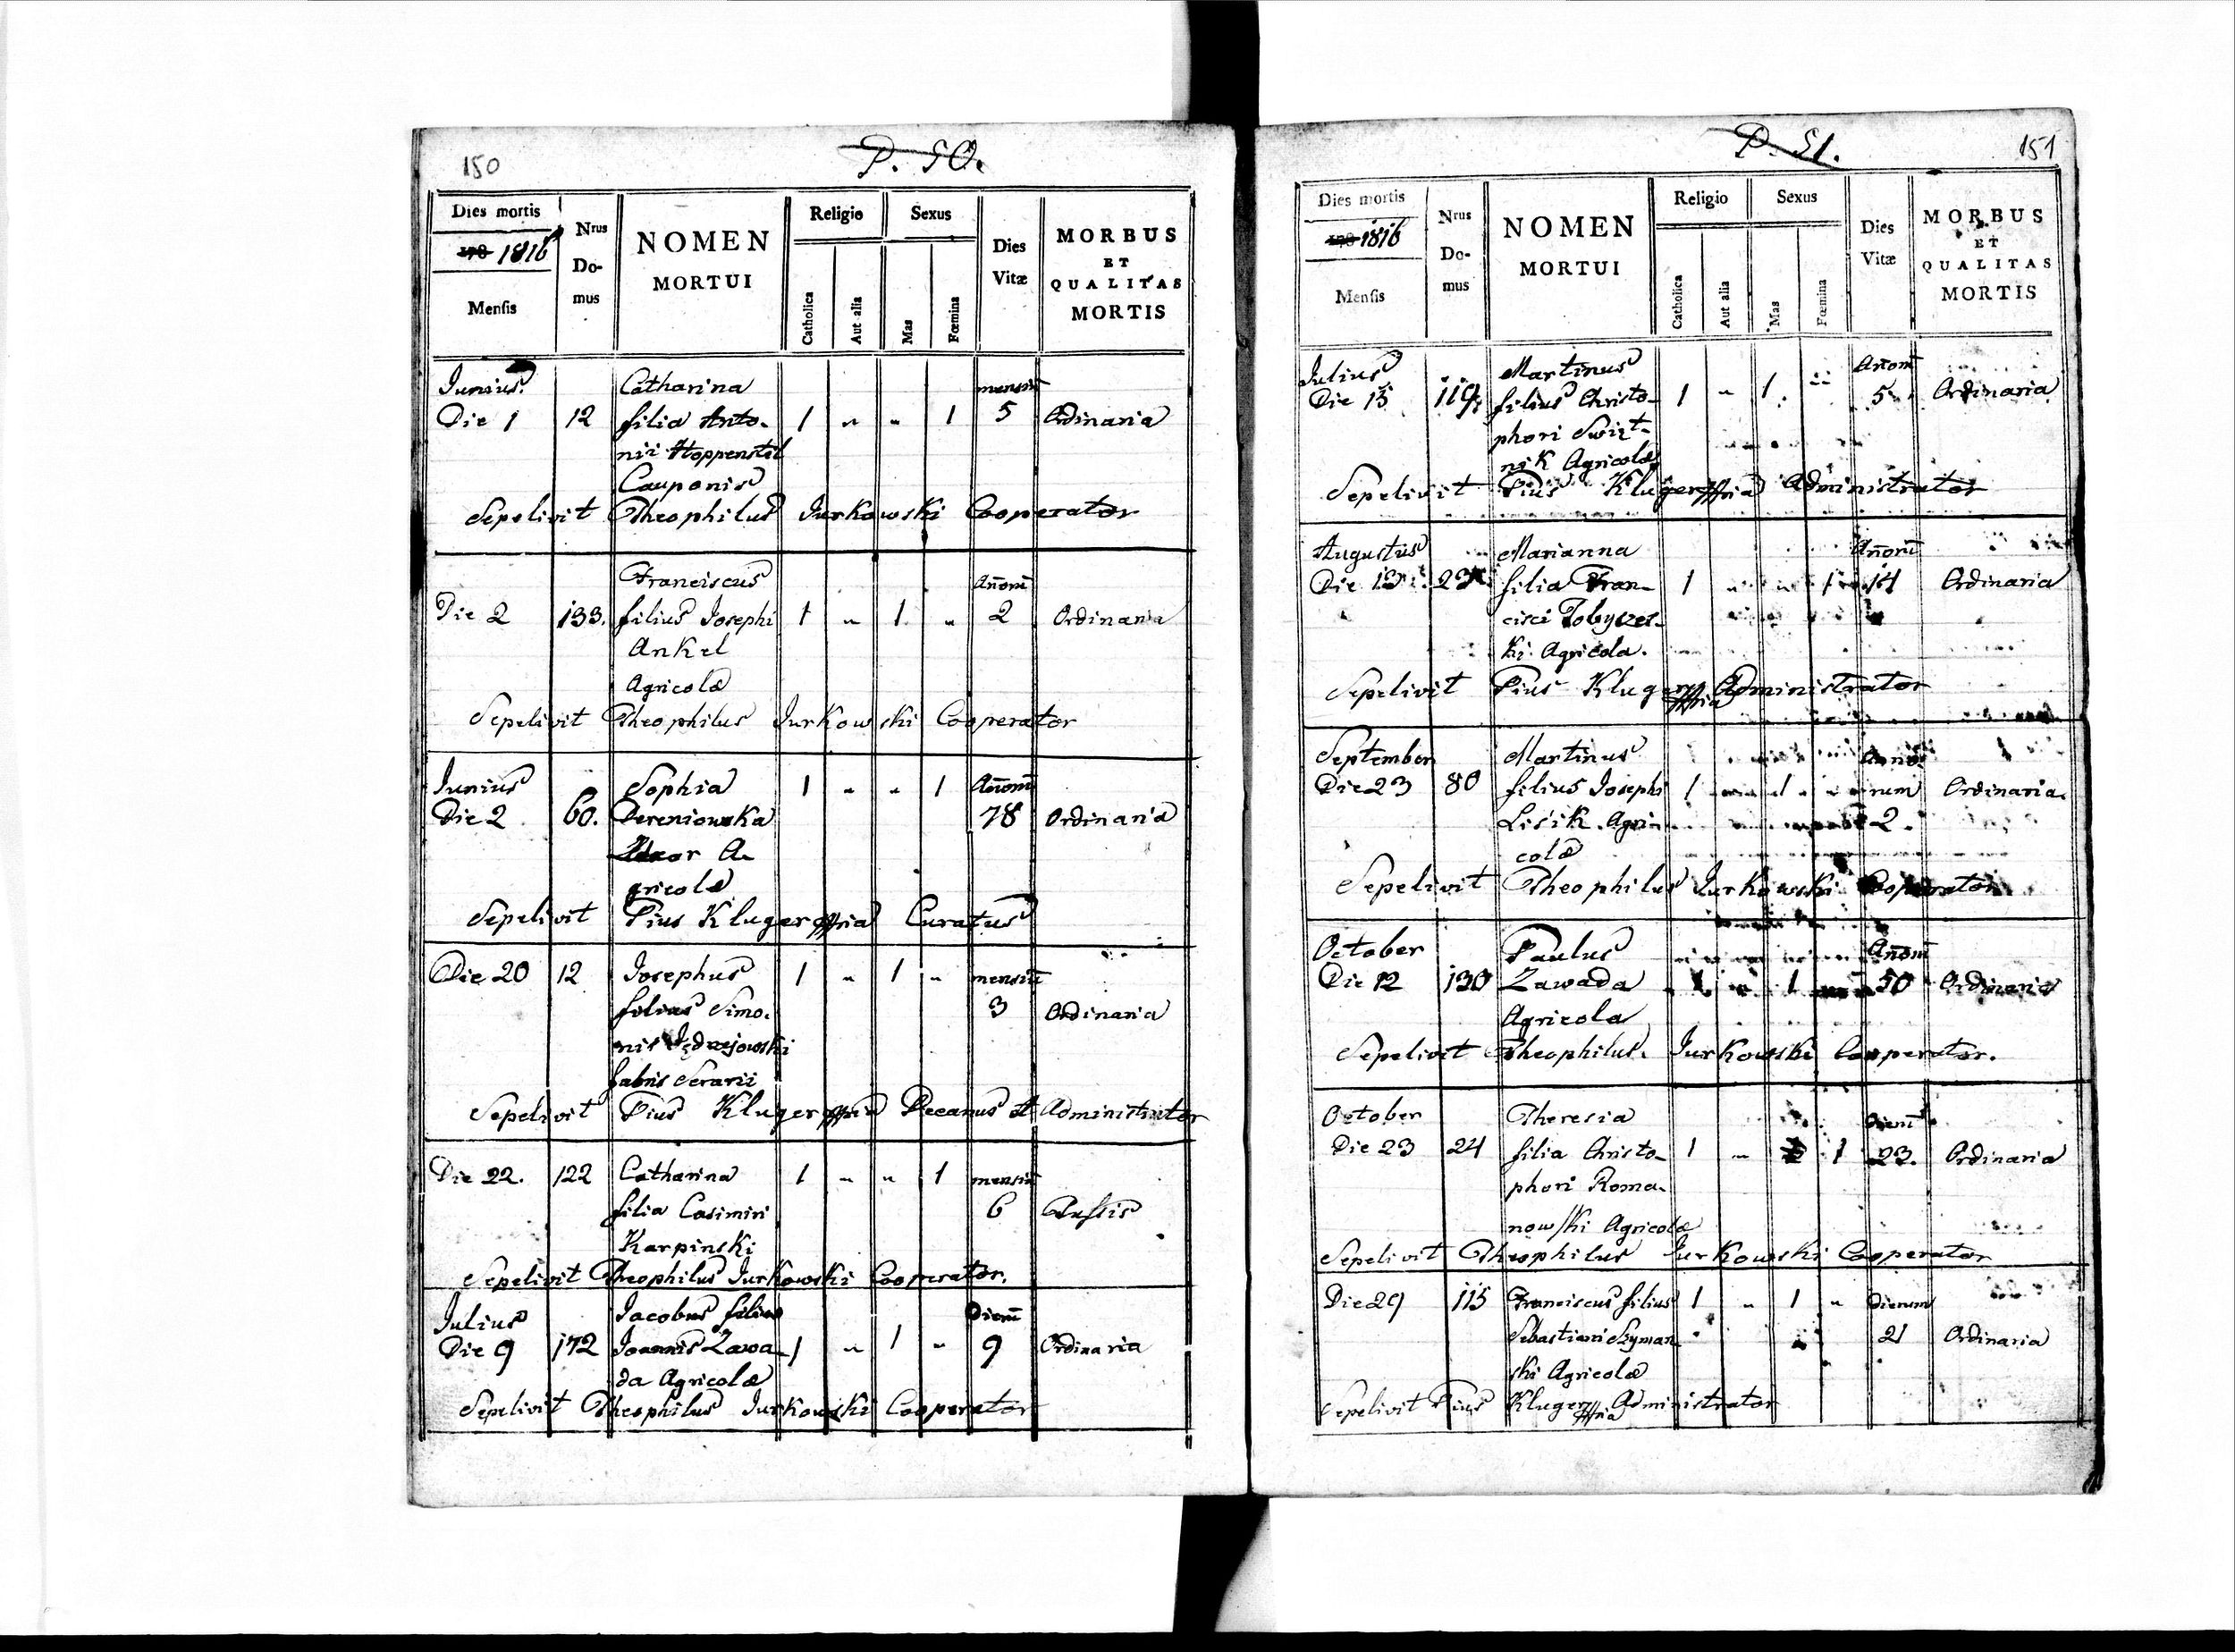 150
P. 50.
Dies mortis
178 1816
Mensis
Nrus Domus
NOMEN
MORTUI
Religio
Catholica
Aut alia
Sexus
Mas
Fœmina
Dies Vitæ
MORBUS
ET
QUALITAS
MORTIS
Junius
Catharina mensiū
Die 1 12 filia Anto- 1 " " 1 5 Ordinaria
nii Hoppenstil
Cauponis
Sepelivit Theophilus Jurkowski Cooperator
Franciscus Añorū
Die 2 133. filius Josephi 1 " 1 " 2 Ordinaria
Ankel
Agricolæ
Sepelivit Theophilus Jurkowski Cooperator
Junius Sophia 1 " " 1 Añorū
Die 2 60. Dereniowska 78 Ordinaria
Uxor A-
gricolæ
Sepelivit Pius Kluger Curatus
Die 20 12 Josephus 1 " 1 " mensiū
filius Simo- 3 Ordinaria
nis Jędrzejowski
fabris Serarii
Sepelivit Pius Kluger Decanus et Administrator
Die 22. 122 Catharina 1 " " 1 mensiū
filia Casimiri 6
Karpinski
Sepelivit Theophilus Jurkowski Cooperator.
Julius Jacobus filius Dierū
Die 9 172 Joannis Zawa- 1 " 1 " 9 Ordinaria
da Agricolæ
Sepelivit Theophilus Jurkowski Cooperator
P. 51.
151
Dies mortis
178 1816
Mensis
Nrus Domus
NOMEN
MORTUI
Religio
Catholica
Aut alia
Sexus
Mas
Fœmina
Dies Vitæ
MORBUS
ET
QUALITAS
MORTIS
Julius Martinus Añorū
Die 15 119. filius Christo- 1 " 1. " 5 Ordinaria
phori Swiąt-
nik Agricolæ
Sepelivit Pius Kluger Administrator
Augustus Marianna Añorū
Die 13 23 filia Fran- 1 " " 1 14 Ordinaria
cisci Tobyczes-
ki Agricola.
Sepelivit Pius Kluger Administrator
September Martinus Anno-
Die 23 80 filius Josephi 1 " 1 " rum Ordinaria.
Lisik Agri- 2.
colæ
Sepelivit Theophilus Jurkowski Cooperator
October Paulus Añorū
Die 12 130 Zawada 1 " 1 50 Ordinaria
Agricola
Sepelivit Theophilus Jurkowski Cooperator.
October Theresia Dierū
Die 23 24 filia Christo- 1 " 1 23. Ordinaria
phori Roma-
nowski Agricolæ
Sepelivit Theophilus Jurkowski Cooperator
Die 29 115 Franciscus filius 1 " 1 " Dierum
Sebastiani Szyman- 21 Ordinaria
ski Agricolæ
Sepelivit Pius Kluger Administrator